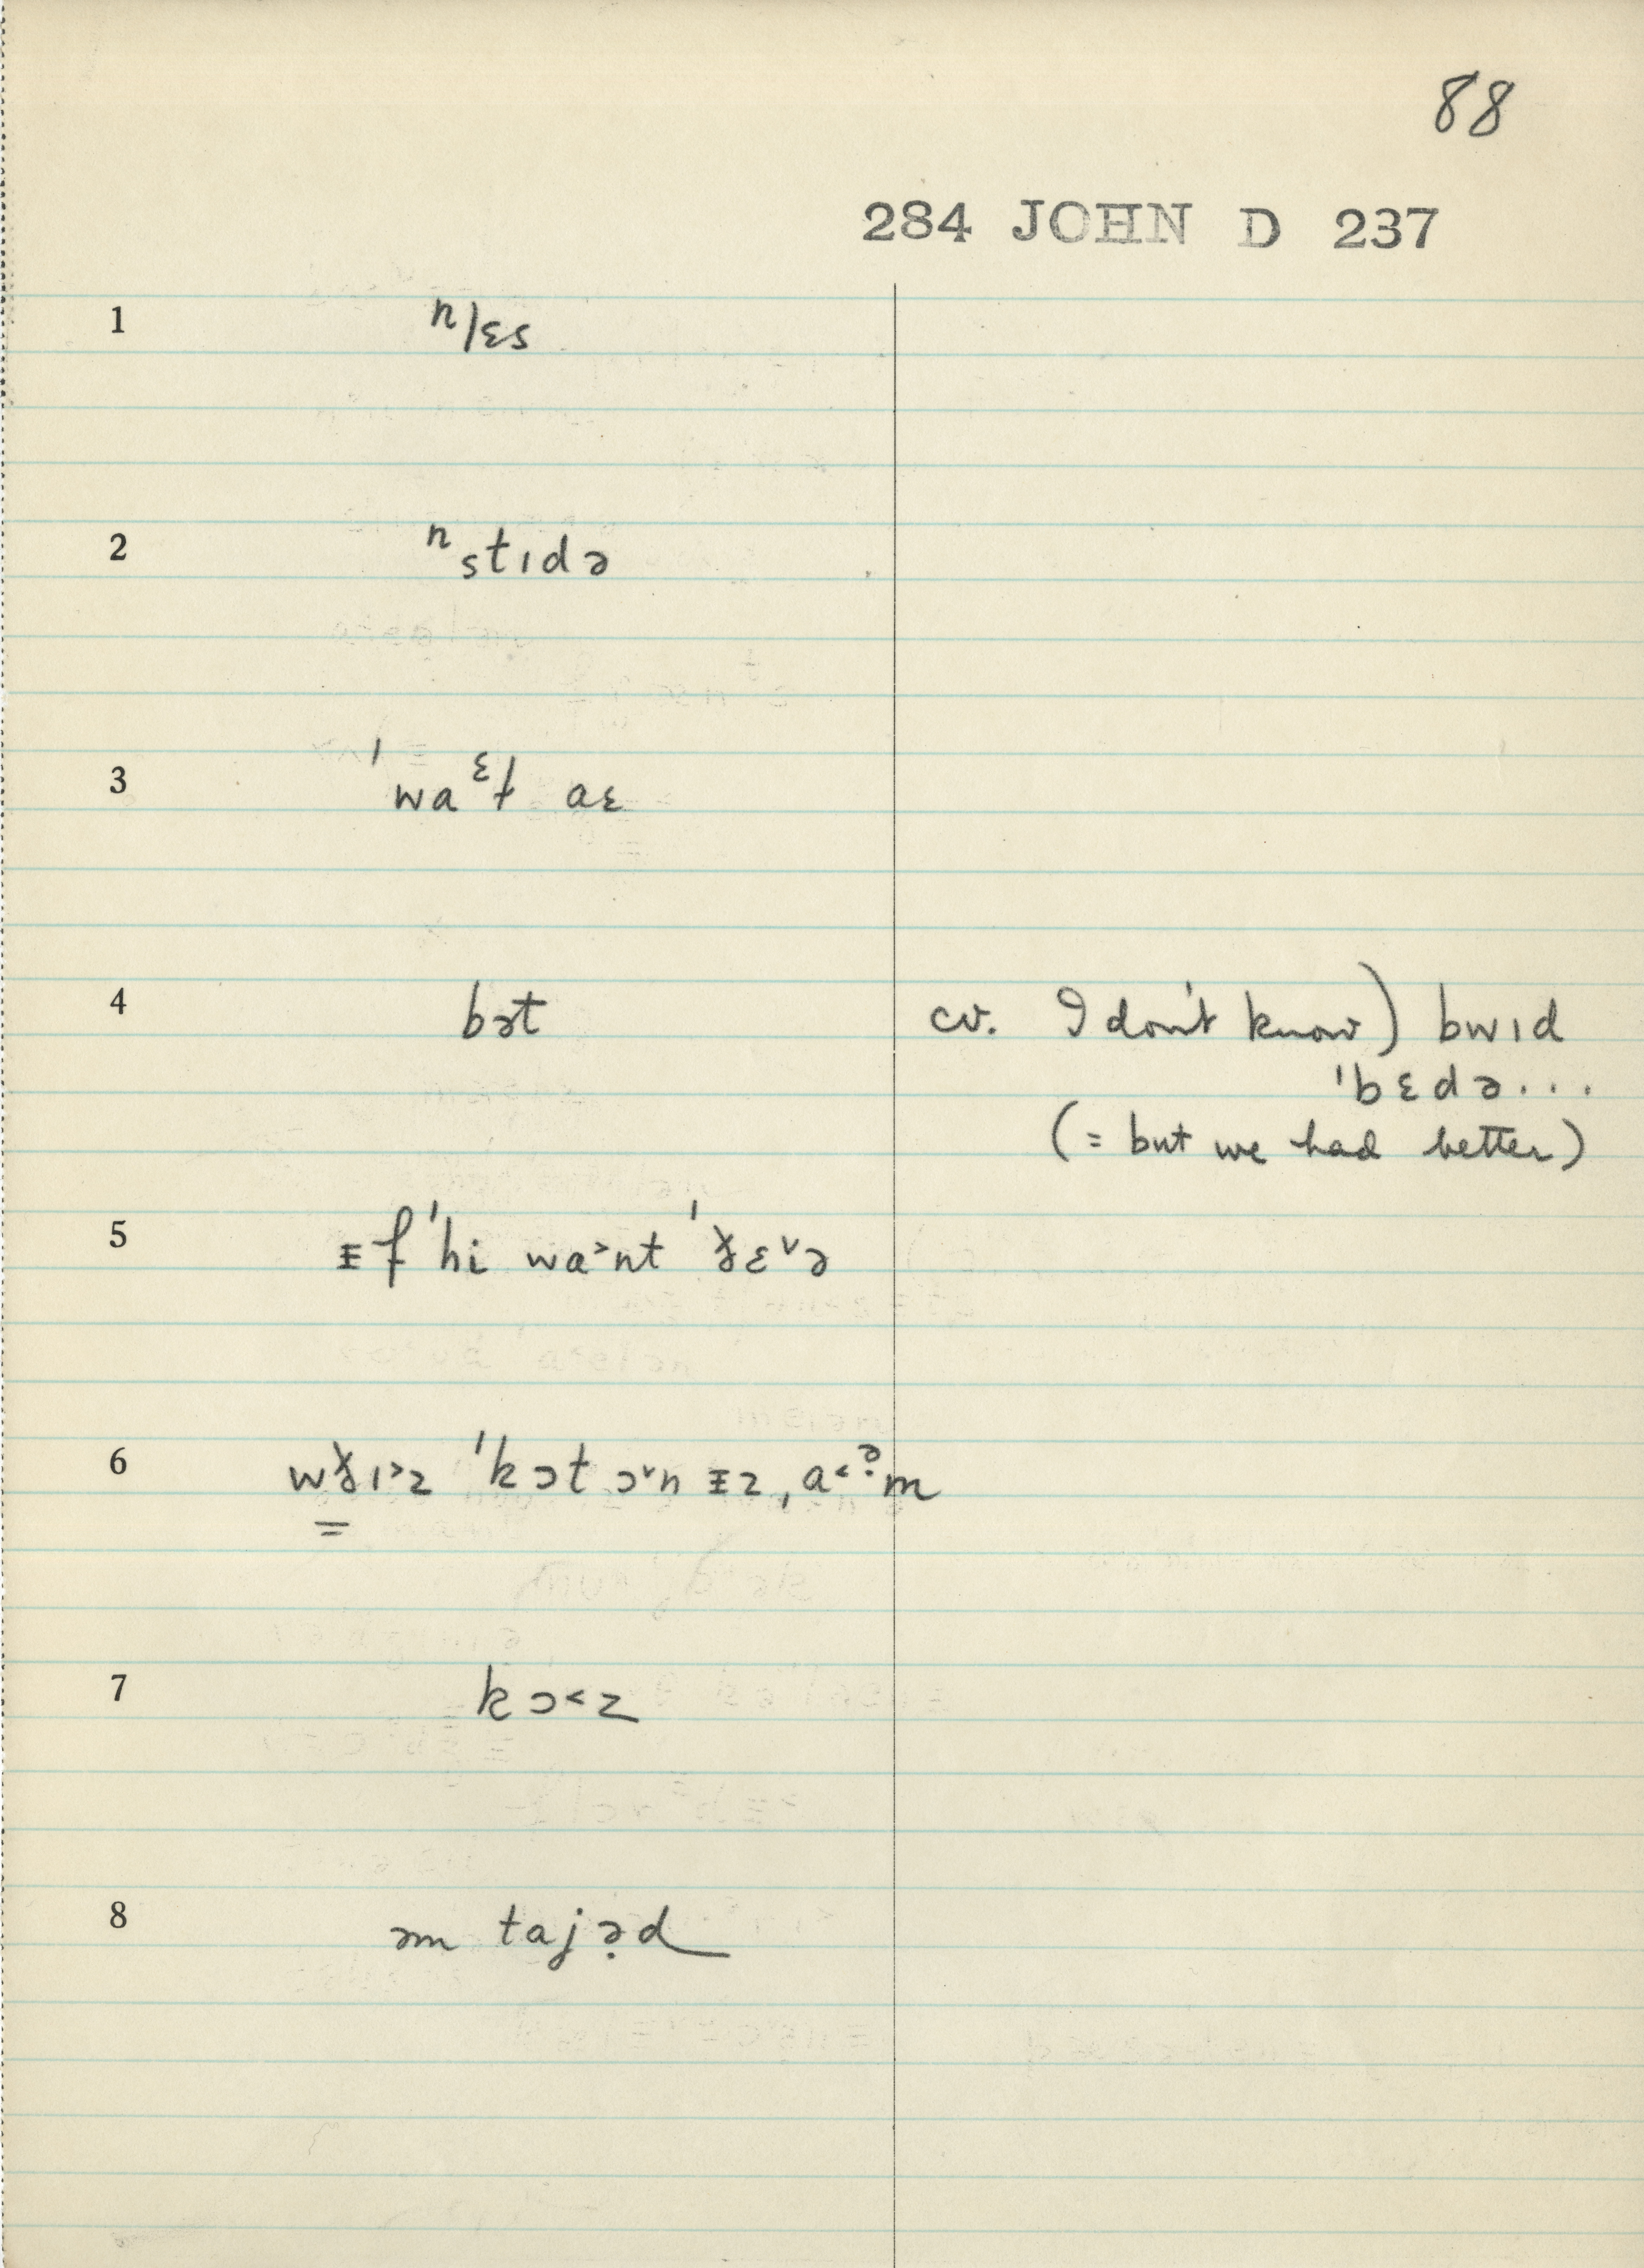 88
284 JOHN D 237
1 ⁿlɛs
2 ⁿstɪdə
3 ˈwaᵋɫ aɛ
4 bət cv. I don't know) bwɪd
ˈbɛdə...
(= but we had better)
5 ᵻf ˈhi wa˃nt ˈɣ̵ɛ˅ə
6 wɣ̵ɪ˃z ˈkɔt ɔ˅n ᵻz, a˂ˀm
7 kɔ˂z
8 əm tajə̣d